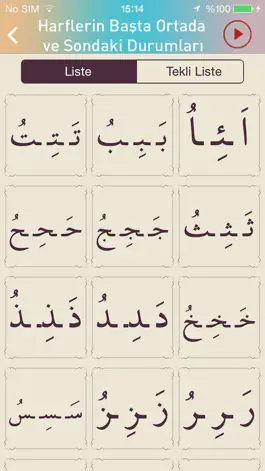 No SIM 15:14 %100
Harflerin Başta Ortada
ve Sondaki Durumları
Liste Tekli Liste
اَئِاُ بَـبِـبُ تَـتِـتُ
ثَـثِـثُ جَـجِـجُ حَـحِـحُ
خَـخِـخُ دَـدِـدُ ذَـذِـذُ
رَـرِـرُ زَـزِـزُ سَـسِـسُ